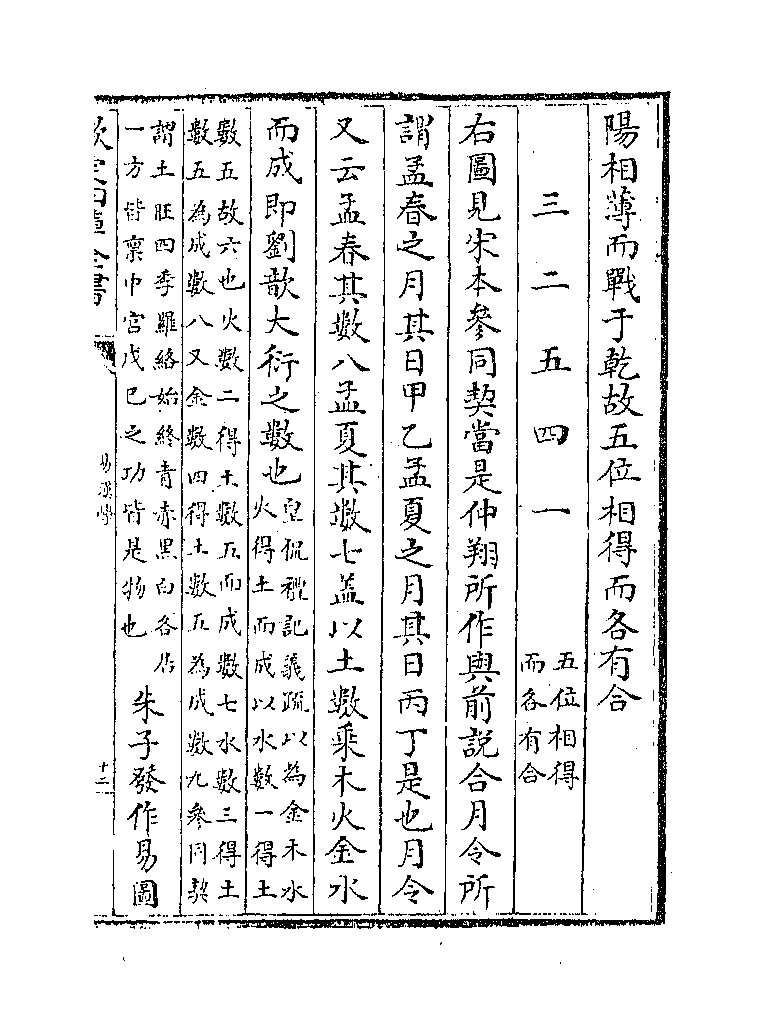 陽相薄而戰于乾故五位相得而各有合
三二五四一
五位相得
而各有合
右圖見宋本參同契當是仲翔所作與前說合月令所
謂孟春之月其日甲乙孟夏之月其日丙丁是也月令
又云孟春其數八孟夏其數七盖以土數乘木火金水
而成即劉歆大衍之數也
皇侃禮記義疏以為金木水
火得土而成以水數一得土
數五故六也火數二得土數五而成數七水數三得土
數五為成數八又金數四得土數五為成數九參同契
謂土旺四季羅絡始終青赤黑白各居
一方皆禀中宫戊巳之功皆是物也
朱子發作易圖
欽定四庫全書
易漢學
十二